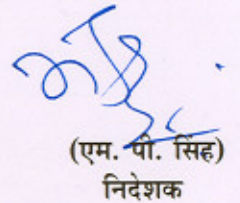 (एम. पी. सिंह)
निदेशक